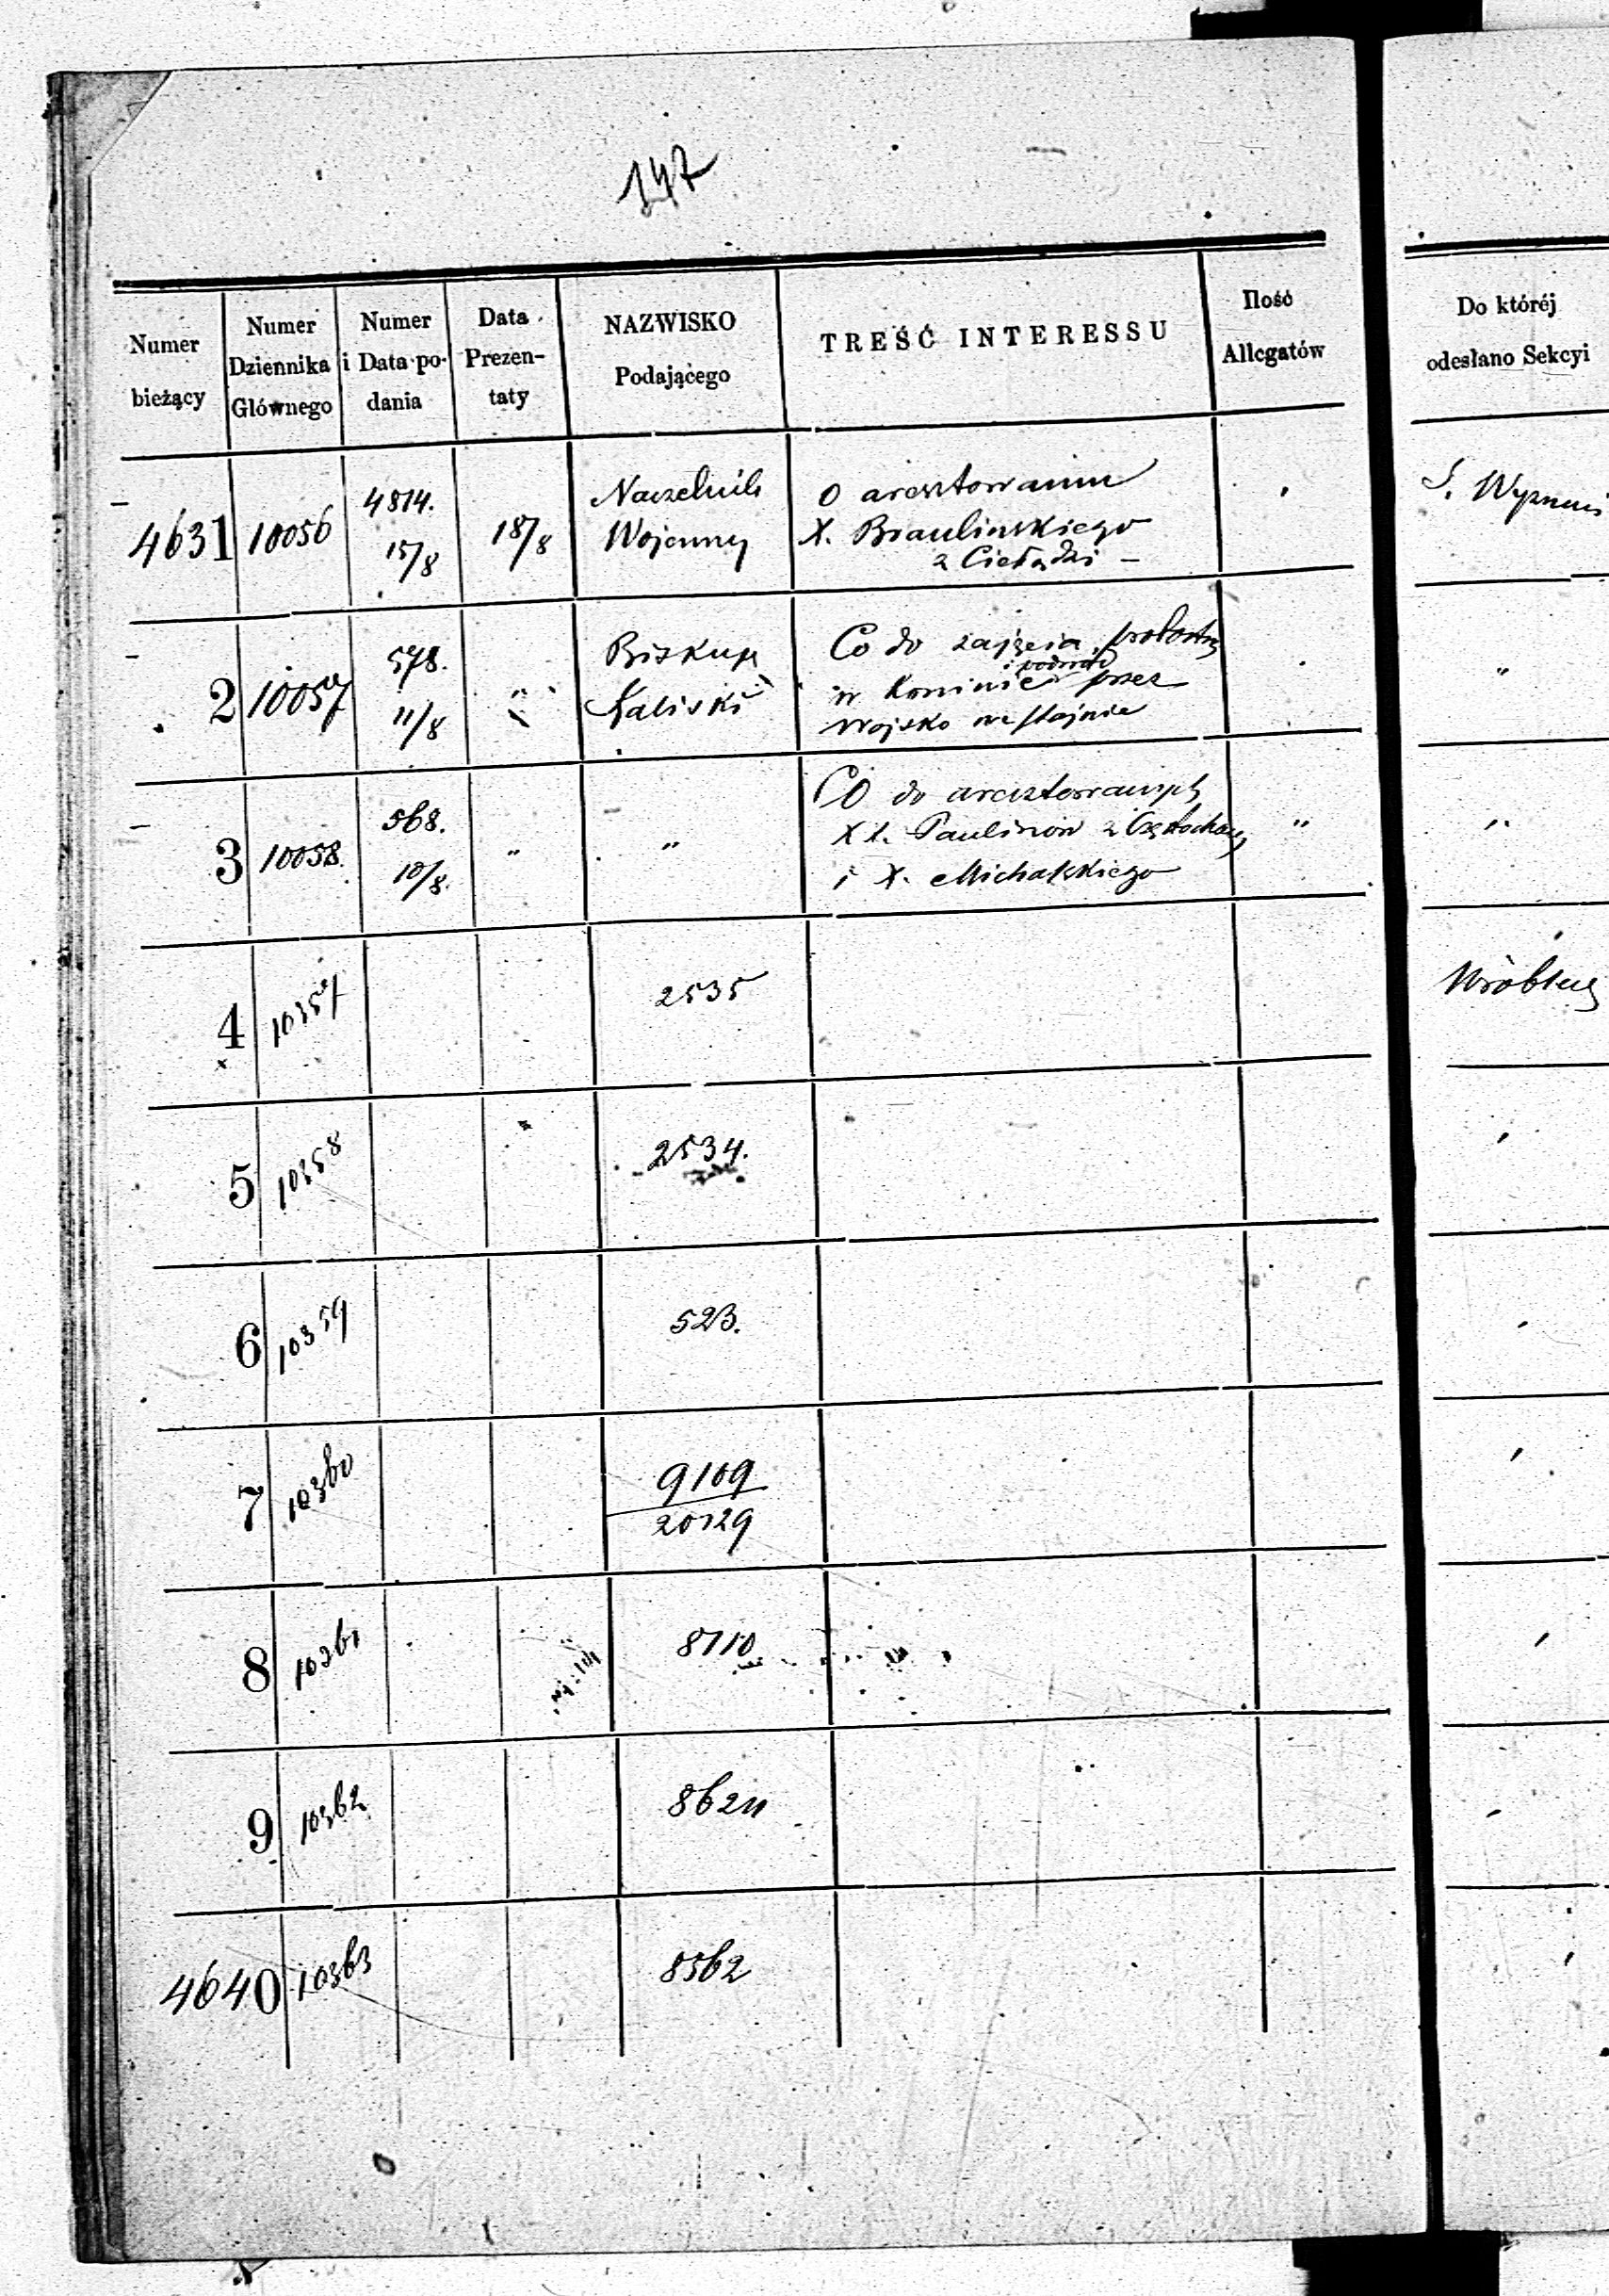 147
Numer bieżący
Numer Dziennika Głównego
Numer i Data podania
Data Prezentaty
NAZWISKO Podającego
TREŚĆ INTERESSU
Ilość Allegatów
Do któréj odesłano Sekcyi
4631 10056 4814. 15/8 18/8
Naczelnik
Wojenny
O aresztowaniu
X. Braulinskiego
z
2 10057 578. 11/8 "
Biskup
Kaliski
Co do zajęcia
i
w Koninie przez
Wojsko na stajnie
"
3 10058 568. 10/8 " "
Co do aresztowanych
XX. Paulinów z Częstochowy
i X. Michalskiego
" "
4 10357 2535
5 10358 2534.
6 10359 523.
7 10360 9109
20129
8 10361 8710
9 10362
4640 10363 8562